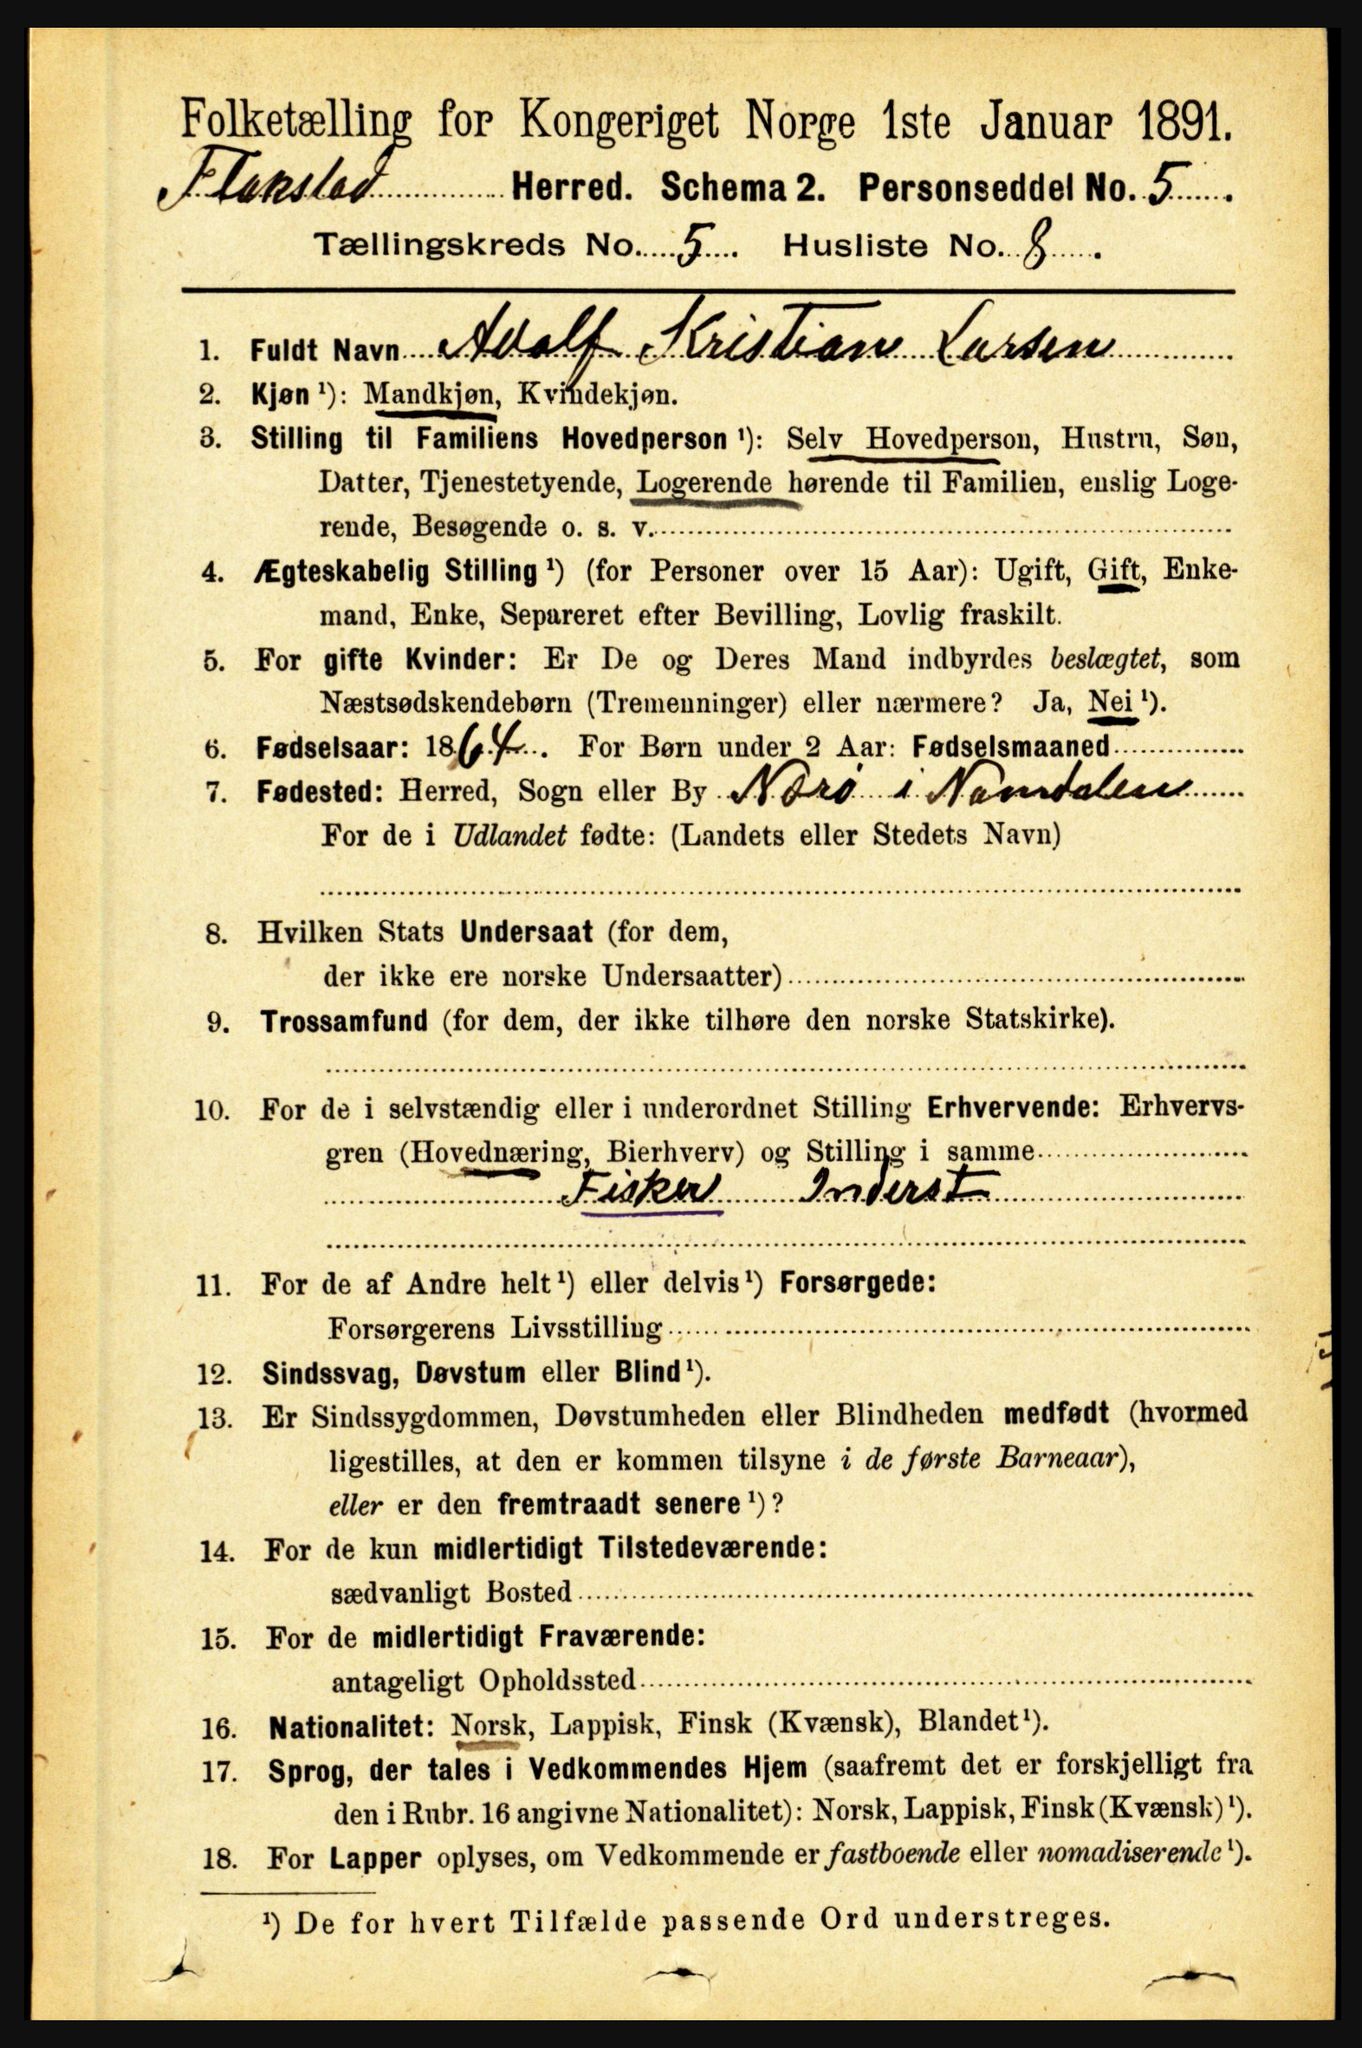 Folketælling for Kongeriget Norge 1ste Januar 1891.
Flakstad Herred. Schema 2. Personseddel No. 5.
Tællingskreds No. 5. Husliste No. 8.
1. Fuldt Navn Adolf Kristian Larsen
2. Kjøn ¹): Mandkjøn, Kvindekjøn.
3. Stilling til Familiens Hovedperson ¹): Selv Hovedperson, Hustru, Søn,
Datter, Tjenestetyende, Logerende hørende til Familien, enslig Loge-
rende, Besøgende o. s. v.
4. Ægteskabelig Stilling ¹) (for Personer over 15 Aar): Ugift, Gift, Enke-
mand, Enke, Separeret efter Bevilling, Lovlig fraskilt.
5. For gifte Kvinder: Er De og Deres Mand indbyrdes beslægtet, som
Næstsødskendebørn (Tremenninger) eller nærmere? Ja, Nei ¹).
6. Fødselsaar: 1864. For Børn under 2 Aar: Fødselsmaaned
7. Fødested: Herred, Sogn eller By Nærø i Namdalen
For de i Udlandet fødte: (Landets eller Stedets Navn)
8. Hvilken Stats Undersaat (for dem,
der ikke ere norske Undersaatter)
9. Trossamfund (for dem, der ikke tilhøre den norske Statskirke).
10. For de i selvstændig eller i underordnet Stilling Erhvervende: Erhvervs-
gren (Hovednæring, Bierhverv) og Stilling i samme
Fisker Inderst
11. For de af Andre helt ¹) eller delvis ¹) Forsørgede:
Forsørgerens Livsstilling
12. Sindssvag, Døvstum eller Blind ¹).
13. Er Sindssygdommen, Døvstumheden eller Blindheden medfødt (hvormed
ligestilles, at den er kommen tilsyne i de første Barneaar),
eller er den fremtraadt senere ¹)?
14. For de kun midlertidigt Tilstedeværende:
sædvanligt Bosted
15. For de midlertidigt Fraværende:
antageligt Opholdssted
16. Nationalitet: Norsk, Lappisk, Finsk (Kvænsk), Blandet ¹).
17. Sprog, der tales i Vedkommendes Hjem (saafremt det er forskjelligt fra
den i Rubr. 16 angivne Nationalitet): Norsk, Lappisk, Finsk (Kvænsk) ¹).
18. For Lapper oplyses, om Vedkommende er fastboende eller nomadiserende ¹).
¹) De for hvert Tilfælde passende Ord understreges.